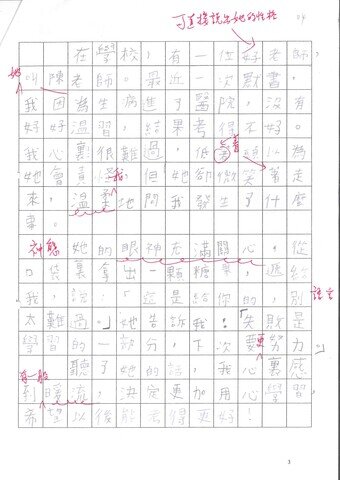 可直接說出她的性格
04
在學校，有一位好老師，
她
叫陳老師。最近一次默書，
我因為生病進了醫院，沒有
好好溫習，結果考得不好。
我心裏很難過，低着頭以為
她會責怪我，但她卻微笑着走
來，溫柔地問我發生了什麼
事。
神態
她的眼神充滿關心，從
口袋裏拿出一顆糖果，遞給
我，說：「這是給你的，別
語言
太難過。」她告訴我：「失敗是
學習的一部分，下次要更努力。」
聽了她的話，我心裏感
有一股
到暖流，決定更加用心學習，
希望以後能考得更好！
3